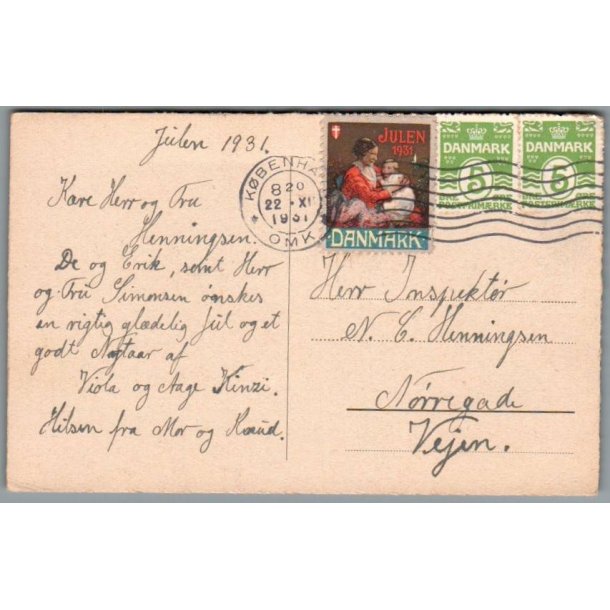 Julen 1931.
Kære Herr og Fru
Henningsen.
De og Erik, samt Herr
og Fru Simonsen ønskes
en rigtig glædelig Jul og et
godt Nytaar af
Viola og Aage Kinzi.
Hilsen fra Mor og
KØBENHA
8 20
22 · XII
1931
OMK
JULEN
1931
DANMARK
DANMARK
5
DANMARK
5
Herr Inspektør
N. C. Henningsen
Nørregade
Vejen.